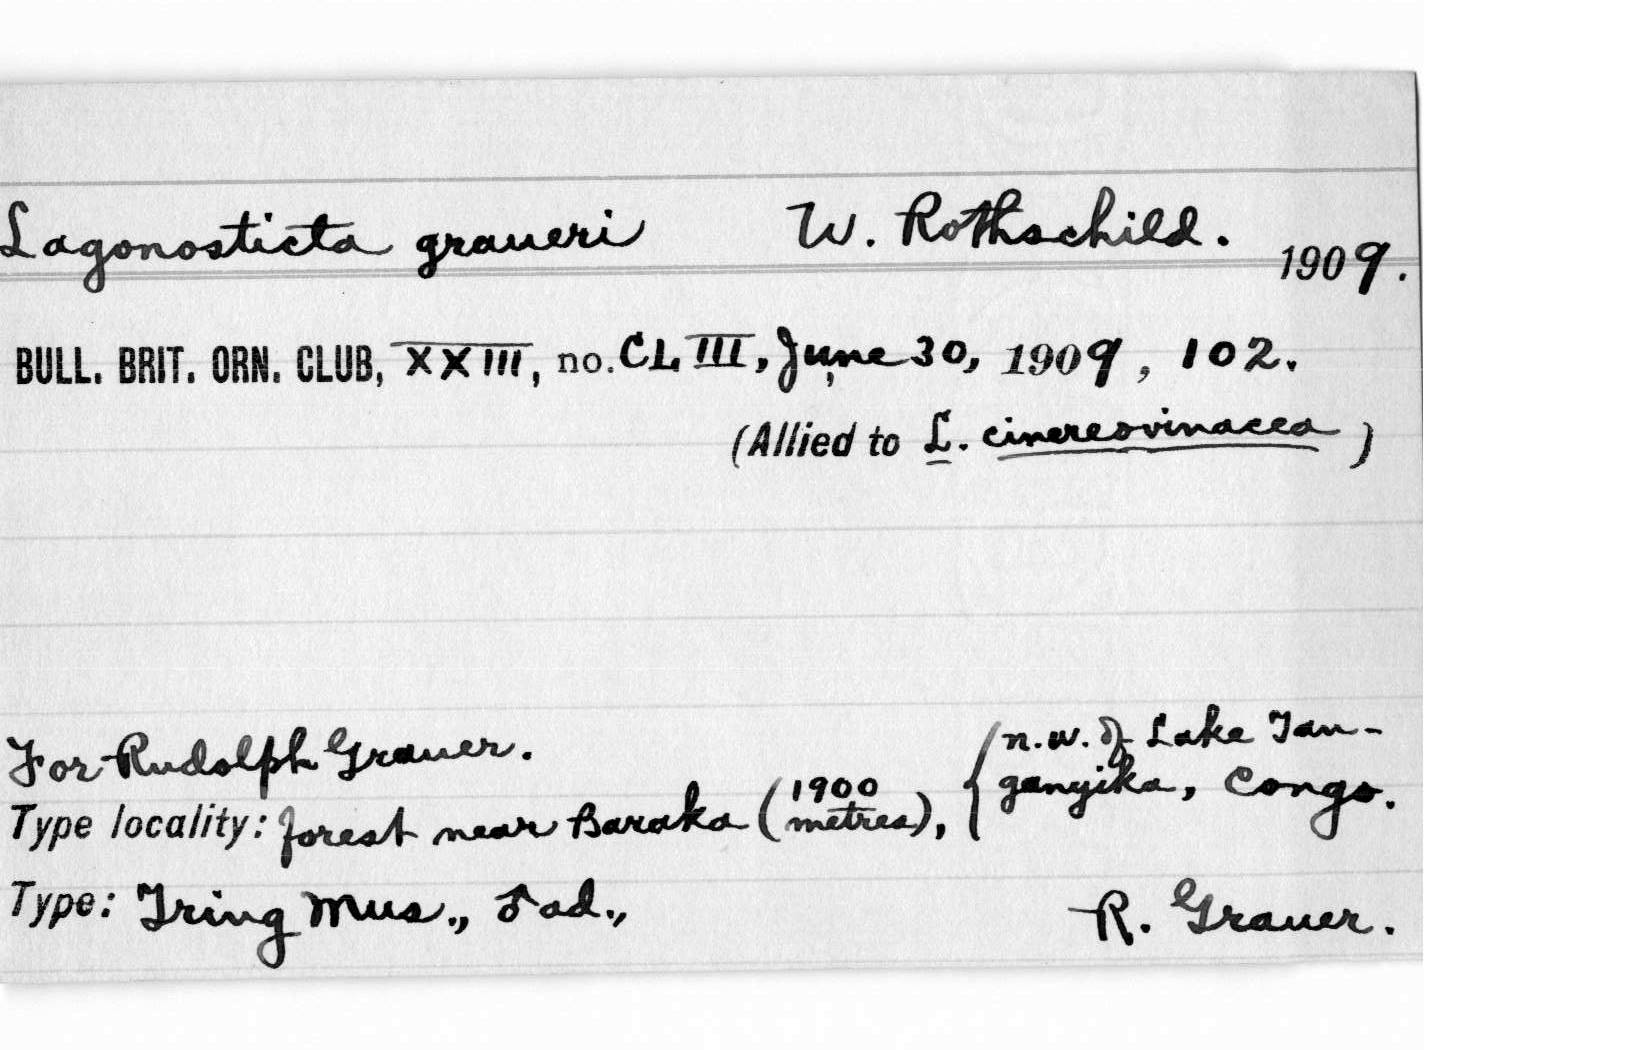 Lagonosticta graueri W. Rothschild. 1909.
BULL. BRIT. ORN. CLUB, XXIII, no. CLIII, June 30, 1909, 102.
(Allied to L. cinereovinacea)
For Rudolph Grauer.
Type locality: forest near Baraka (1900 metres), {n.w. of Lake Tan-
ganyika, Congo.
Type: Tring Mus., ♂ ad., R. Grauer.